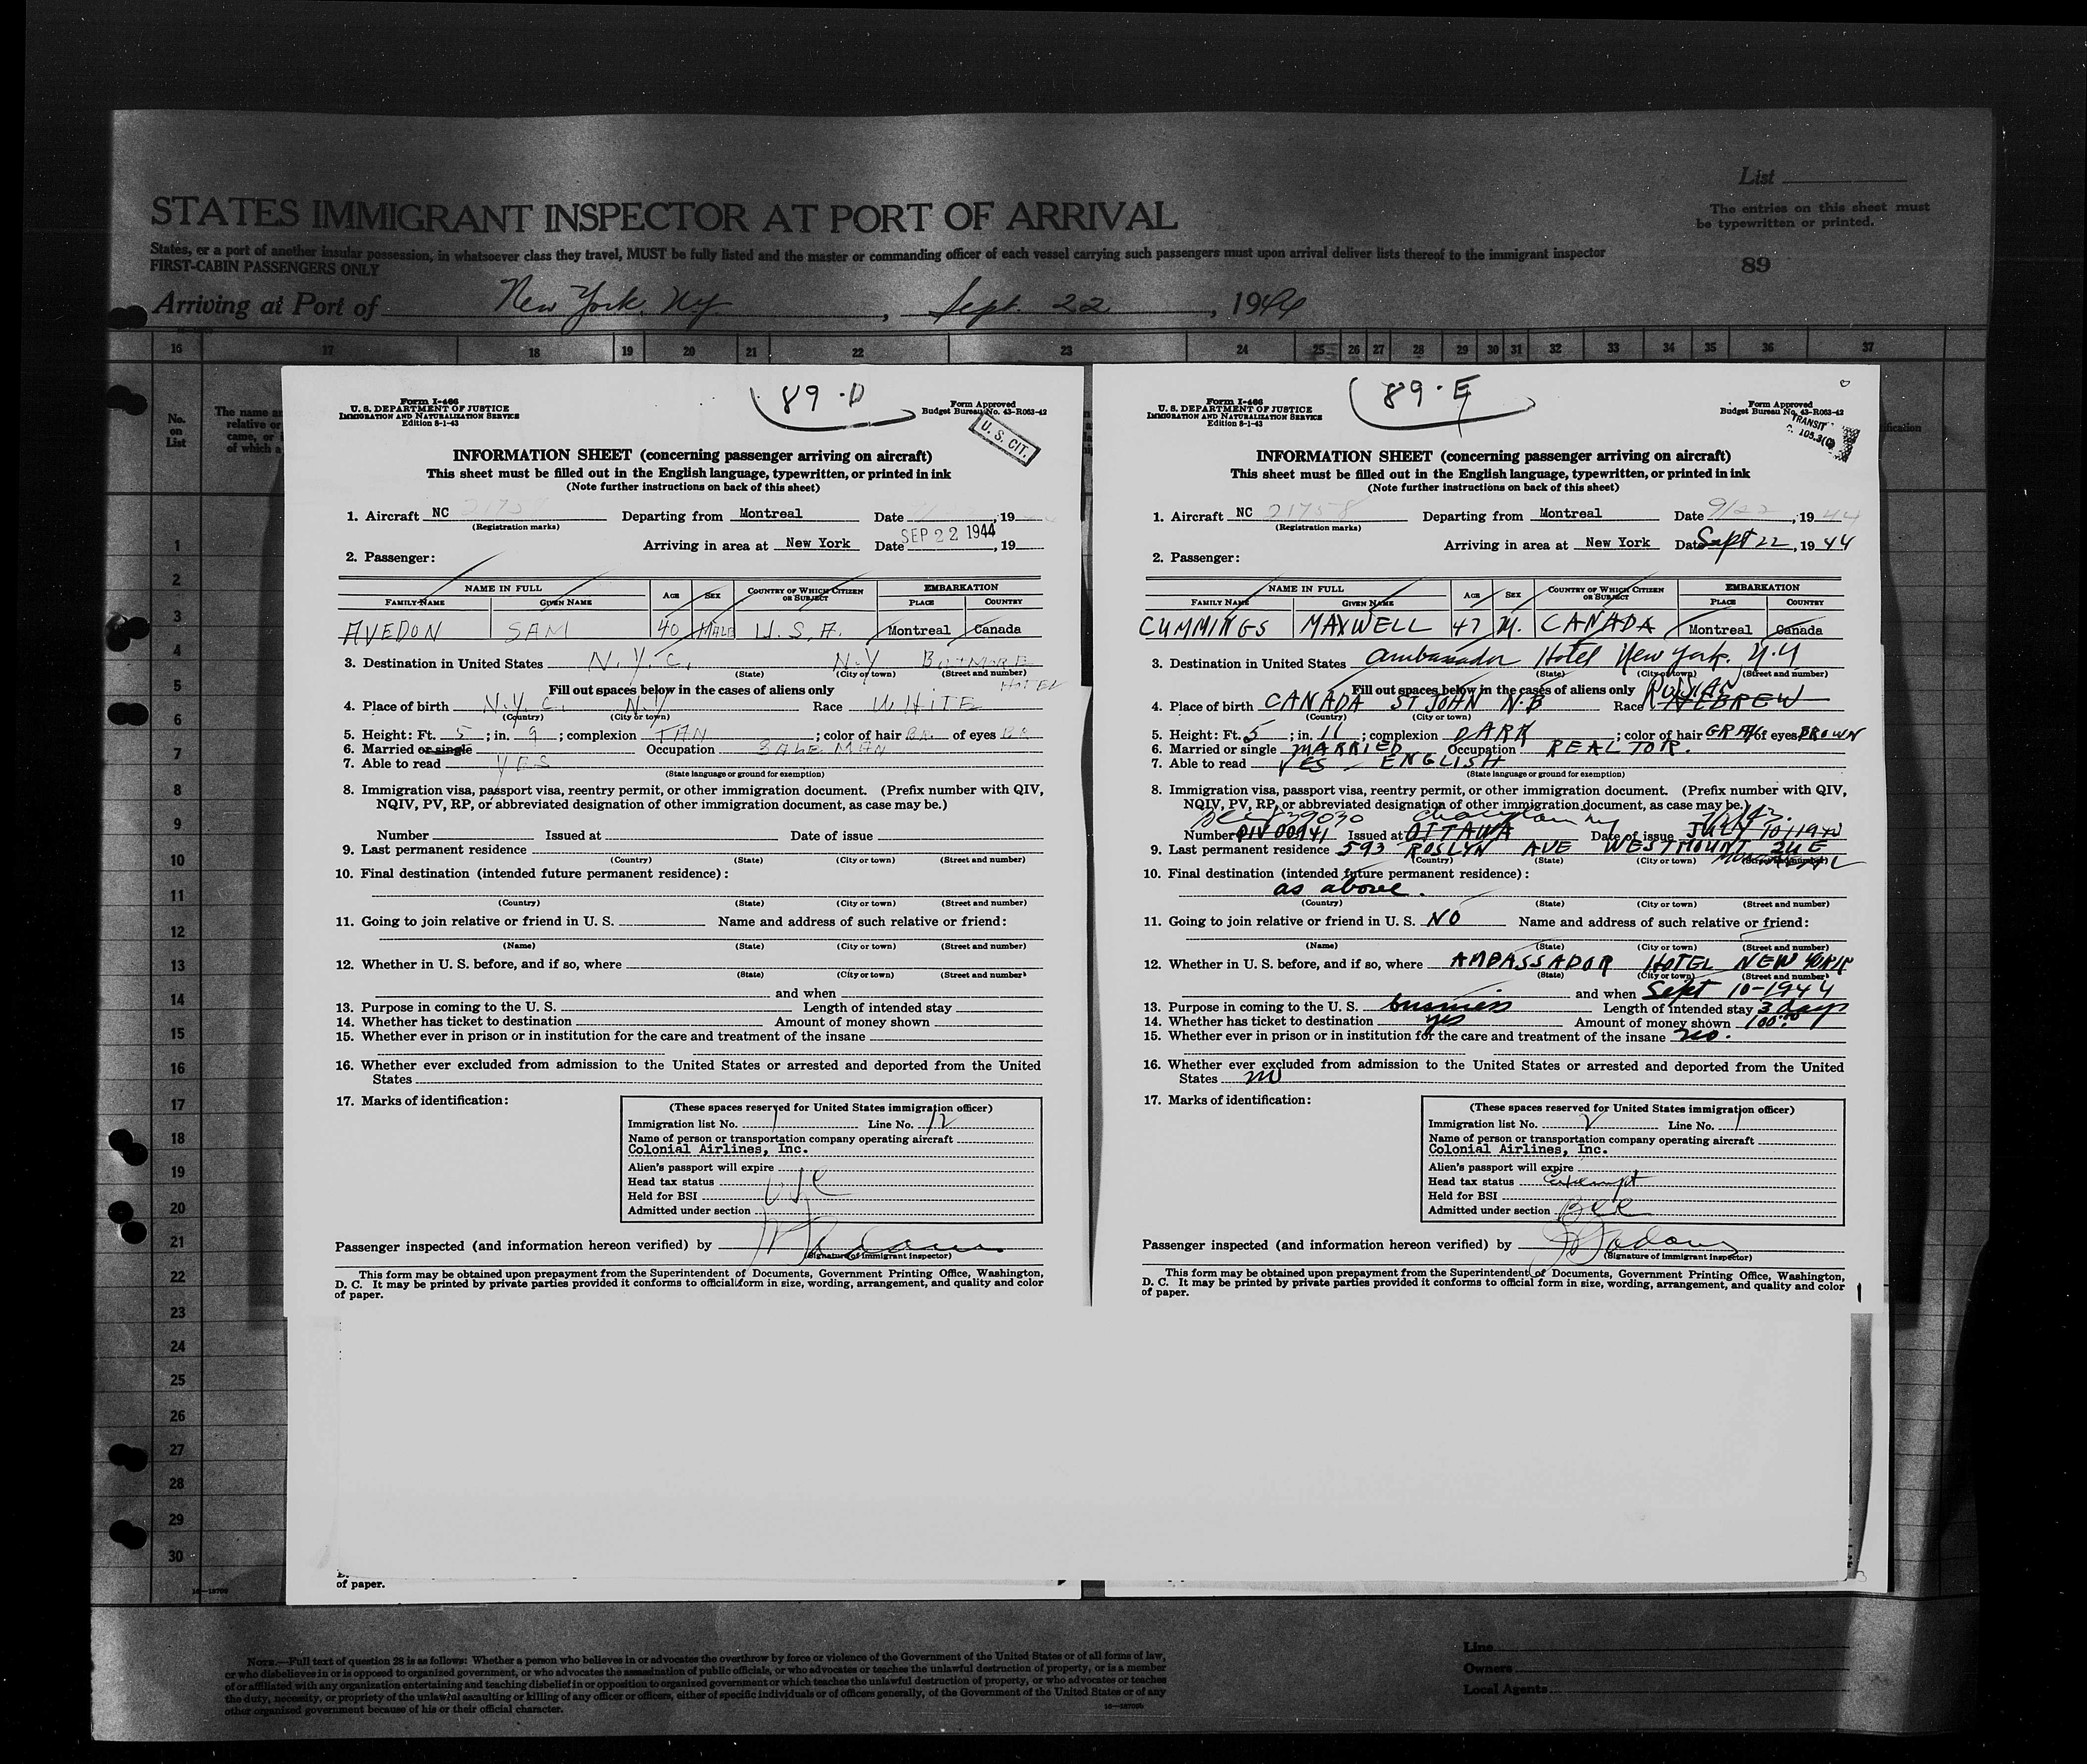 List
STATES IMMIGRANT INSPECTOR AT PORT OF ARRIVAL
The entries on this sheet must
be typewritten or printed.
States, or a port of another insular possession, in whatsoever class they travel, MUST be fully listed and the master or commanding officer of each vessel carrying such passengers must upon arrival deliver lists thereof to the immigrant inspector
FIRST-CABIN PASSENGERS ONLY
89
Arriving at Port of New York, N.Y., Sept. 22, 1944
16 17 18 19 20 21 22 23 24 25 26 27 28 29 30 31 32 33 34 35 36 37
No. on List
The name a
relative or
came, or
of which a
1
2
3
4
5
6
7
8
9
10
11
12
13
14
15
16
17
18
19
20
21
22
23
24
25
26
27
28
29
30
89-D
Form I-466
U. S. DEPARTMENT OF JUSTICE
IMMIGRATION AND NATURALIZATION SERVICE
Edition 8-1-43
Form Approved
Budget Bureau No. 43-R063-42
U. S. CIT.
INFORMATION SHEET (concerning passenger arriving on aircraft)
This sheet must be filled out in the English language, typewritten, or printed in ink
(Note further instructions on back of this sheet)
1. Aircraft NC Departing from Montreal Date , 19
(Registration marks)
Arriving in area at New York Date SEP 22 1944, 19
2. Passenger:
NAME IN FULL AGE SEX COUNTRY OF WHICH CITIZEN OR SUBJECT EMBARKATION
FAMILY NAME GIVEN NAME PLACE COUNTRY
AVEDON SAM 40 MALE U.S.A. Montreal Canada
3. Destination in United States N.Y.C. N.Y BILTMORE HOTEL
(State) (City or town) (Street and number)
Fill out spaces below in the cases of aliens only
4. Place of birth N.Y.C. N.Y Race WHITE
(Country) (City or town)
5. Height: Ft. 5; in. 9; complexion TAN; color of hair BR. of eyes BR
6. Married or single Occupation SALEMAN
7. Able to read YES
(State language or ground for exemption)
8. Immigration visa, passport visa, reentry permit, or other immigration document. (Prefix number with QIV,
NQIV, PV, RP, or abbreviated designation of other immigration document, as case may be.)
Number Issued at Date of issue
9. Last permanent residence
(Country) (State) (City or town) (Street and number)
10. Final destination (intended future permanent residence):
(Country) (State) (City or town) (Street and number)
11. Going to join relative or friend in U. S. Name and address of such relative or friend:
(Name) (State) (City or town) (Street and number)
12. Whether in U. S. before, and if so, where
(State) (City or town) (Street and number)
and when
13. Purpose in coming to the U. S. Length of intended stay
14. Whether has ticket to destination Amount of money shown
15. Whether ever in prison or in institution for the care and treatment of the insane
16. Whether ever excluded from admission to the United States or arrested and deported from the United
States
17. Marks of identification:
(These spaces reserved for United States immigration officer)
Immigration list No. 1 Line No. 12
Name of person or transportation company operating aircraft
Colonial Airlines, Inc.
Alien's passport will expire
Head tax status
Held for BSI
Admitted under section
Passenger inspected (and information hereon verified) by
(Signature of immigrant inspector)
This form may be obtained upon prepayment from the Superintendent of Documents, Government Printing Office, Washington,
D. C. It may be printed by private parties provided it conforms to official form in size, wording, arrangement, and quality and color
of paper.
of paper.
89-E
Form I-466
U. S. DEPARTMENT OF JUSTICE
IMMIGRATION AND NATURALIZATION SERVICE
Edition 8-1-43
Form Approved
Budget Bureau No. 43-R063-42
TRANSIT
105.3(C)
INFORMATION SHEET (concerning passenger arriving on aircraft)
This sheet must be filled out in the English language, typewritten, or printed in ink
(Note further instructions on back of this sheet)
1. Aircraft NC 21758 Departing from Montreal Date 9/22, 1944
(Registration marks)
Arriving in area at New York Date Sept 22, 1944
2. Passenger:
NAME IN FULL AGE SEX COUNTRY OF WHICH CITIZEN OR SUBJECT EMBARKATION
FAMILY NAME GIVEN NAME PLACE COUNTRY
CUMMINGS MAXWELL 47 M. CANADA Montreal Canada
3. Destination in United States Ambassador Hotel New York. N.Y
(State) (City or town) (Street and number)
Fill out spaces below in the cases of aliens only
4. Place of birth CANADA ST JOHN N.B Race HEBREW
(Country) (City or town)
5. Height: Ft. 5; in. 11; complexion DARK; color of hair GRAY of eyes BROWN
6. Married or single MARRIED Occupation REALTOR.
7. Able to read YES - ENGLISH
(State language or ground for exemption)
8. Immigration visa, passport visa, reentry permit, or other immigration document. (Prefix number with QIV,
NQIV, PV, RP, or abbreviated designation of other immigration document, as case may be.)
Number Issued at OTTAWA Date of issue JULY
9. Last permanent residence 593 ROSLYN AVE WESTMOUNT QUE
(Country) (State) (City or town) (Street and number)
10. Final destination (intended future permanent residence):
as above.
(Country) (State) (City or town) (Street and number)
11. Going to join relative or friend in U. S. NO Name and address of such relative or friend:
(Name) (State) (City or town) (Street and number)
12. Whether in U. S. before, and if so, where AMBASSADOR HOTEL NEW YORK
(State) (City or town) (Street and number)
and when Sept 10-1944
13. Purpose in coming to the U. S. business Length of intended stay 3 days
14. Whether has ticket to destination yes Amount of money shown 100.00
15. Whether ever in prison or in institution for the care and treatment of the insane no.
16. Whether ever excluded from admission to the United States or arrested and deported from the United
States no
17. Marks of identification:
(These spaces reserved for United States immigration officer)
Immigration list No. 2 Line No. 1
Name of person or transportation company operating aircraft
Colonial Airlines, Inc.
Alien's passport will expire
Head tax status Exempt
Held for BSI
Admitted under section
Passenger inspected (and information hereon verified) by
(Signature of immigrant inspector)
This form may be obtained upon prepayment from the Superintendent of Documents, Government Printing Office, Washington,
D. C. It may be printed by private parties provided it conforms to official form in size, wording, arrangement, and quality and color
of paper.
NOTE.—Full text of question 28 is as follows: Whether a person who believes in or advocates the overthrow by force or violence of the Government of the United States or of all forms of law,
or who disbelieves in or is opposed to organized government, or who advocates the assassination of public officials, or who advocates or teaches the unlawful destruction of property, or is a member
of or affiliated with any organization entertaining and teaching disbelief in or opposition to organized government or which teaches the unlawful destruction of property, or who advocates or teaches
the duty, necessity, or propriety of the unlawful assaulting or killing of any officer or officers, either of specific individuals or of officers generally, of the Government of the United States or of any
other organized government because of his or their official character.
Line
Owners
Local Agents